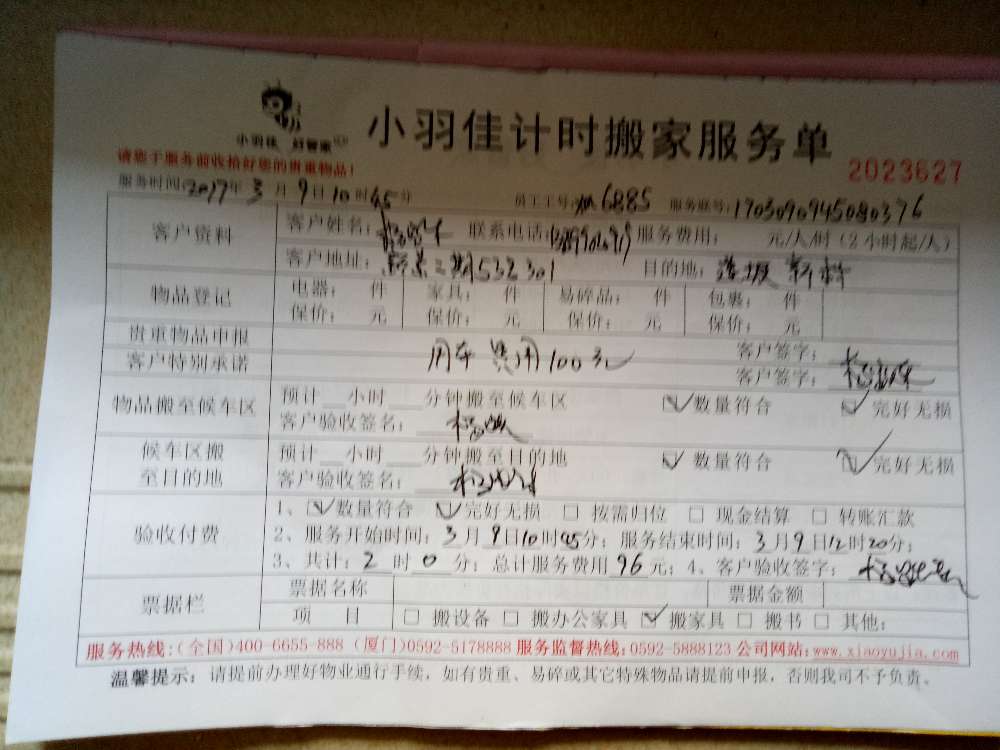 小羽佳 好管家
小羽佳计时搬家服务单
请您于服务前收拾好您的贵重物品!
2023627
服务时间:2017年3月9日10时45分 员工工号:6885 服务账号:1703090945080376
客户资料 客户姓名: 联系电话: 服务费用: 元/人/时(2小时起/人)
客户地址: 二期532301 目的地:
物品登记 电器: 件 家具: 件 易碎品: 件 包裹: 件
保价: 元 保价: 元 保价: 元 保价: 元
贵重物品申报 客户签字:
客户特别承诺 用车费用100元 客户签字:
物品搬至候车区 预计__小时__分钟搬至候车区 ☑数量符合 ☑完好无损
客户验收签名:
候车区搬至目的地 预计__小时__分钟搬至目的地 ☑数量符合 ☑完好无损
客户验收签名:
验收付费 1、☑数量符合 ☑完好无损 □按需归位 □现金结算 □转账汇款
2、服务开始时间:3月9日10时45分;服务结束时间:3月9日12时20分;
3、共计:2时0分;总计服务费用96元;4、客户验收签字:
票据栏 票据名称 票据金额
项 目 □搬设备 □搬办公家具 ☑搬家具 □搬书 □其他:
服务热线:(全国)400-6655-888 (厦门)0592-5178888 服务监督热线:0592-5888123 公司网站:www.xiaoyujia.com
温馨提示: 请提前办理好物业通行手续,如有贵重、易碎或其它特殊物品请提前申报,否则我司不予负责。